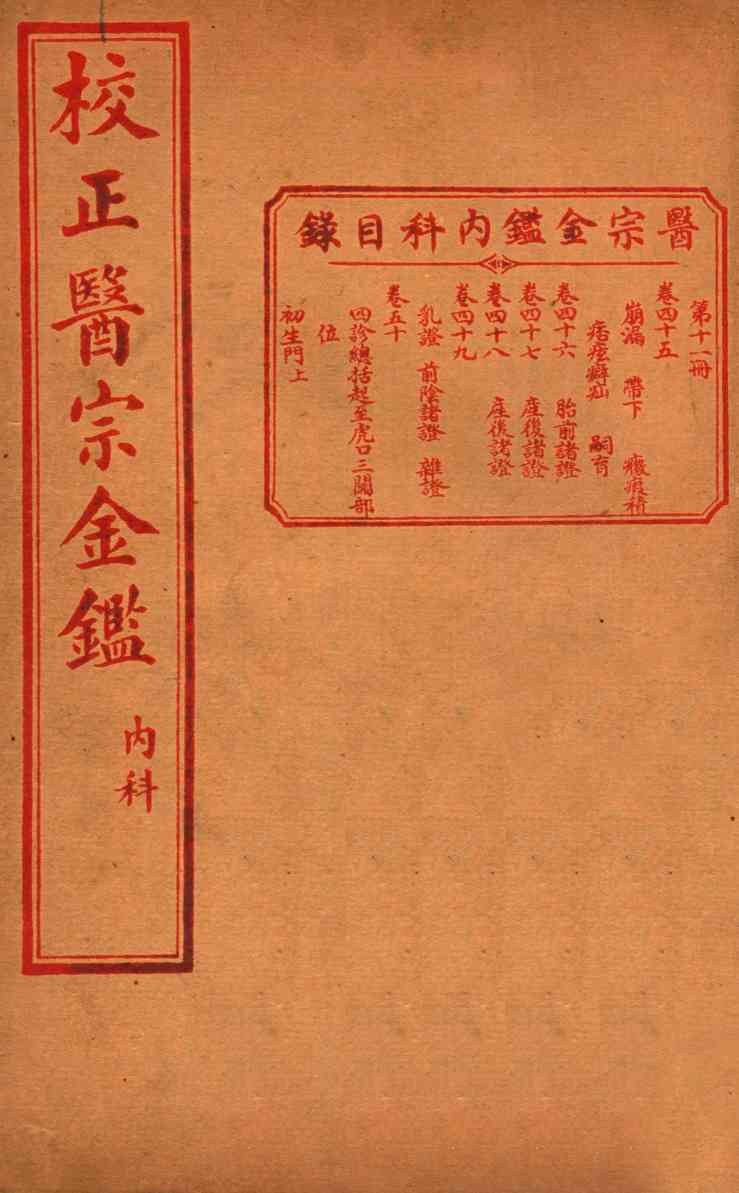 校正醫宗金鑑
內科
醫宗金鑑內科目錄
第十一冊
卷四十五
崩漏 帶下 癥瘕積
痞痃癖疝 嗣育
卷四十六 胎前諸證
卷四十七 產後諸證
卷四十八 產後諸證
卷四十九
乳證 前陰諸證 雜證
卷五十
四診總括起至虎口三關部
位
初生門上